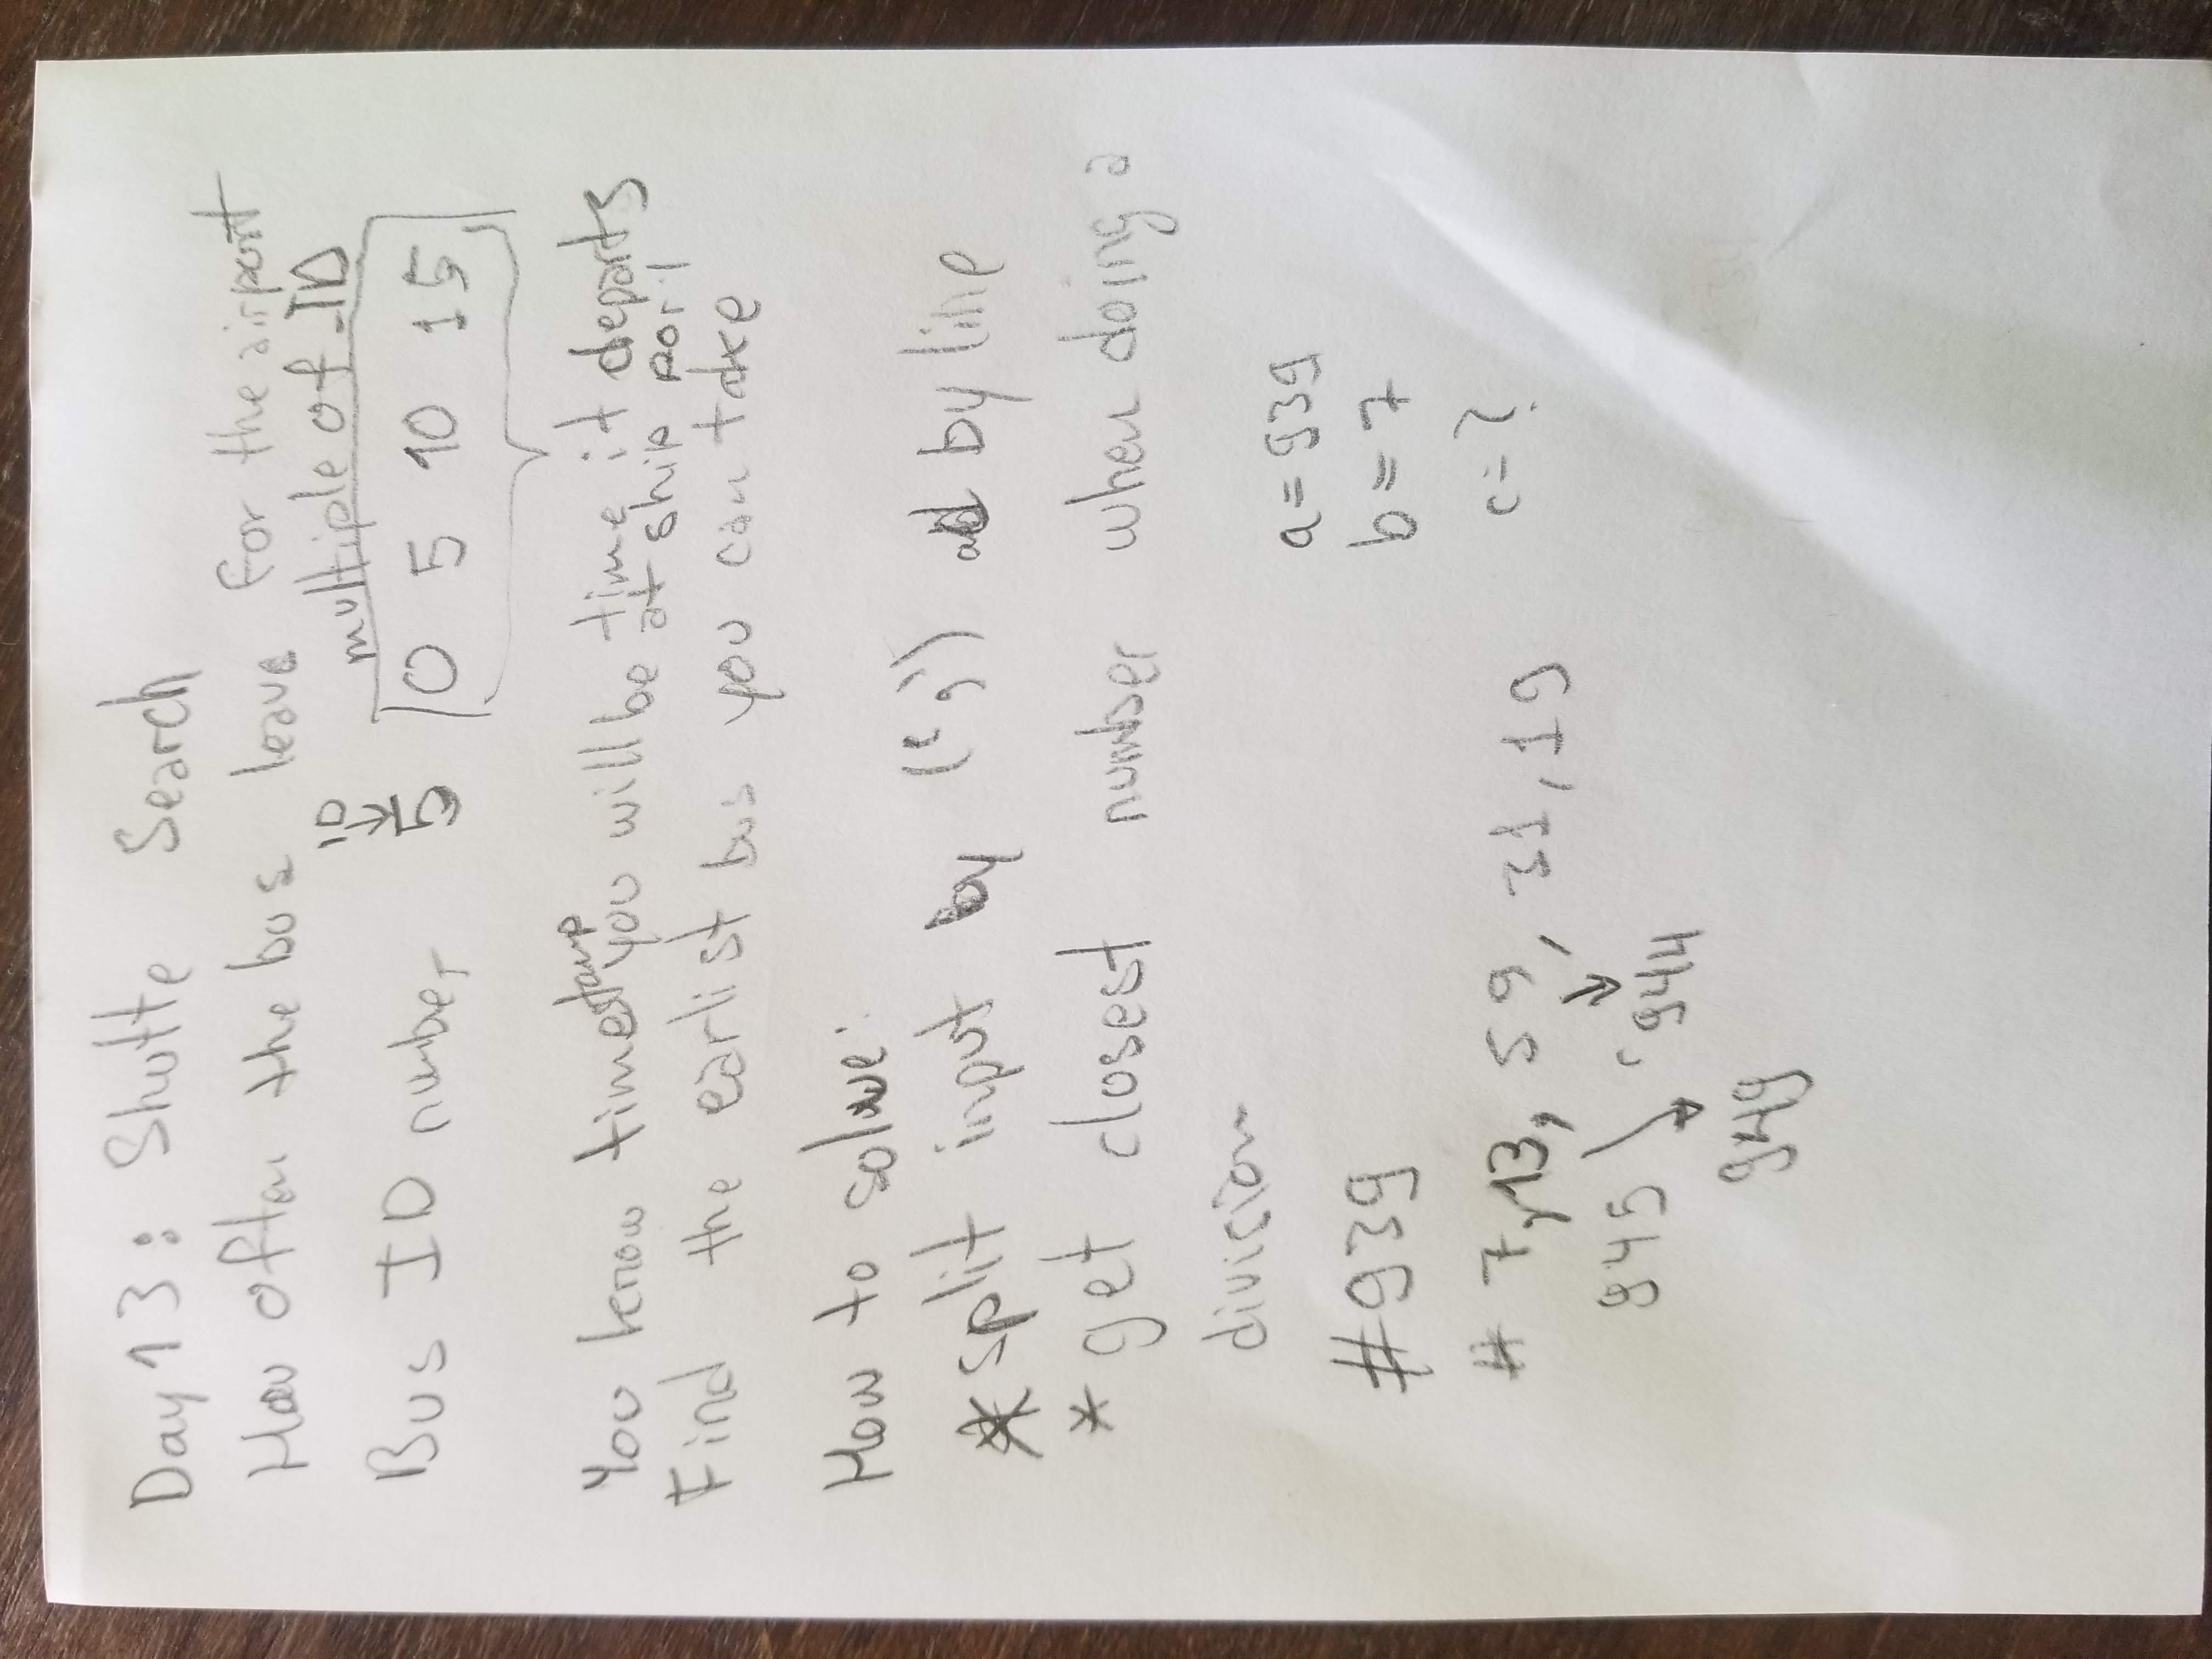 Day 13: Shutte Search
How often the bus leave for the airport
multiple of ID
ID
Bus ID number 5 0 5 10 15
You know timestamp you will be at ship port
time it departs
Find the earlist bus you can take
How to solve:
* split input by (',') ad by line
* get closest number when doing a
division
a = 939
# 939
b = 7
# 7,13, 59, 31, 19
c = ?
945 944
949